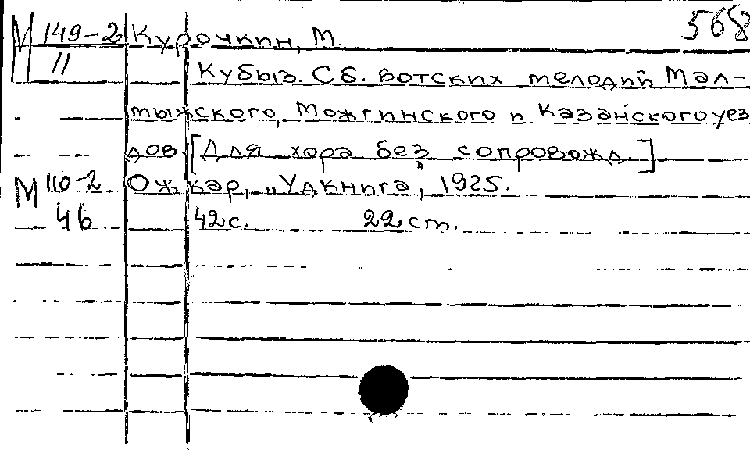 568
М 149-2 Курочкин, М.
11 Кубыз. Сб. вотских мелодий Мал-
мыжского, Можгинского и Казанского уез
дов [Для хора без сопровожд.]
М 110-2 Ож кар, „Удкнига", 1925.
46 42 с. 22 см.